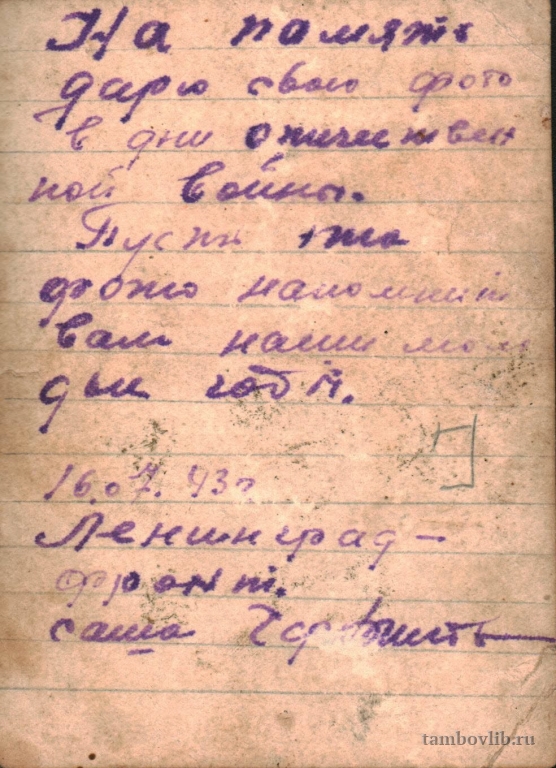 На память
дарю свою фото
в дни отичествен
ной войны.
Пусть это
фото напомнит
вам наши моло
дыи годы.
16.07.43г
Ленинград-
фронт.
саша
tambovlib.ru